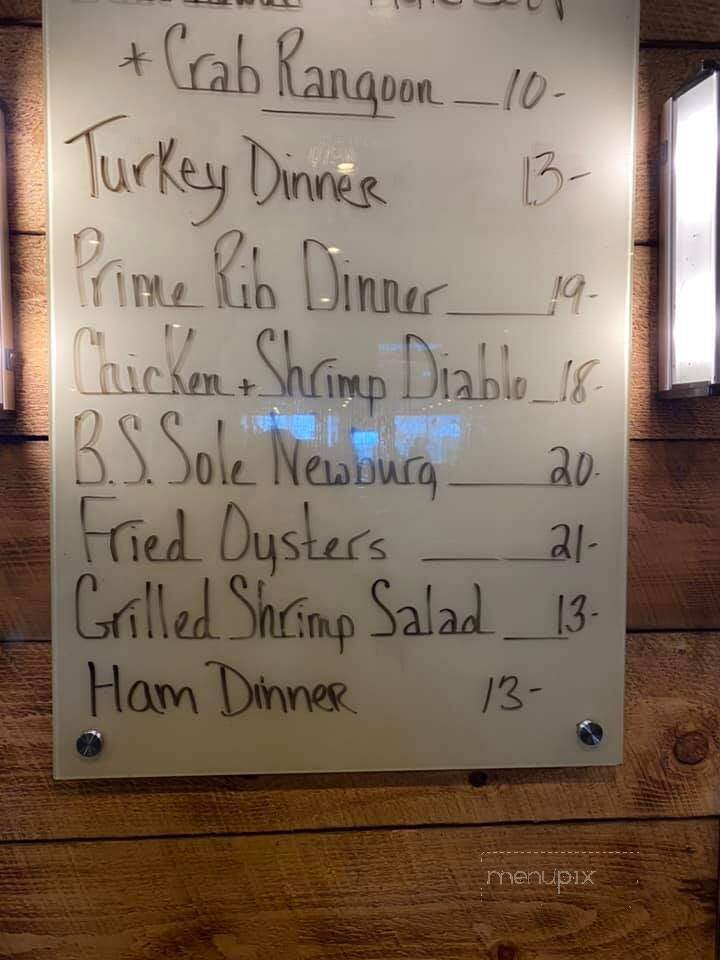 * Crab Rangoon 10-
Turkey Dinner 13-
Prime Rib Dinner 19-
Chicken + Shrimp Diablo 18-
B.S. Sole Newburg 20-
Fried Oysters 21-
Grilled Shrimp Salad 13-
Ham Dinner 13-
menupix